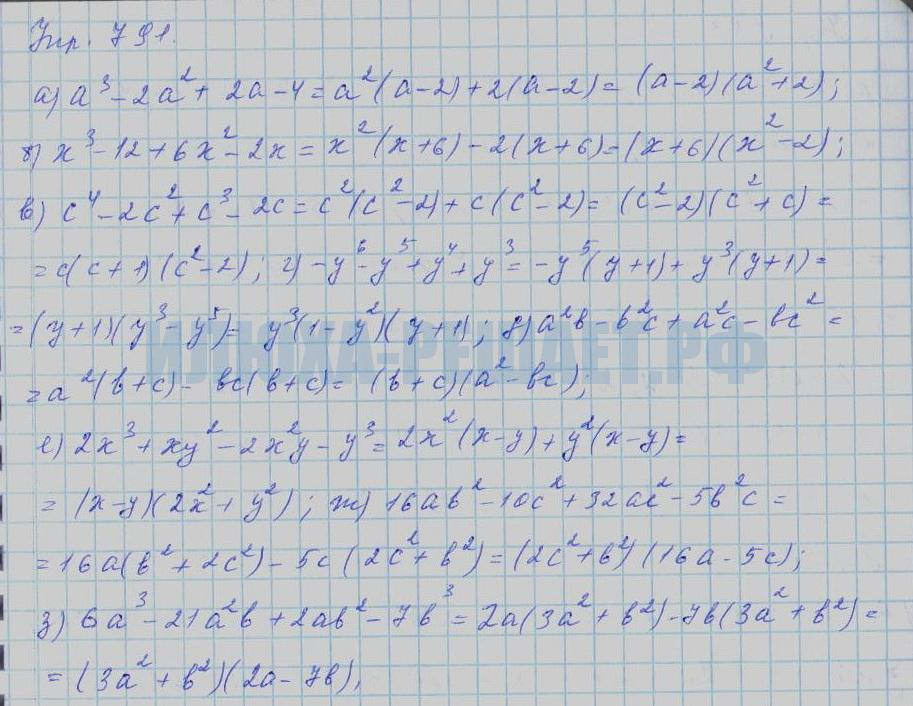 Упр. 791.
а) a³ - 2a² + 2a - 4 = a²(a-2) + 2(a-2) = (a-2)(a²+2);
б) x³ - 12 + 6x² - 2x = x²(x+6) - 2(x+6) = (x+6)(x²-2);
в) c⁴ - 2c² + c³ - 2c = c²(c²-2) + c(c²-2) = (c²-2)(c²+c) =
= c(c+1)(c²-2); г) -y⁶ - y⁵ + y⁴ + y³ = -y⁵(y+1) + y³(y+1) =
= (y+1)(y³-y⁵) = y³(1-y²)(y+1); д) a²b - b²c + a²c - bc² =
= a²(b+c) - bc(b+c) = (b+c)(a²-bc);
ИЛЮХА-РЕШАЕТ.РФ
е) 2x³ + xy² - 2x²y - y³ = 2x²(x-y) + y²(x-y) =
= (x-y)(2x²+y²); ж) 16ab² - 10c² + 32ac² - 5b²c =
= 16a(b²+2c²) - 5c(2c²+b²) = (2c²+b²)(16a-5c);
з) 6a³ - 21a²b + 2ab² - 7b³ = 2a(3a²+b²) - 7b(3a²+b²) =
= (3a²+b²)(2a-7b);